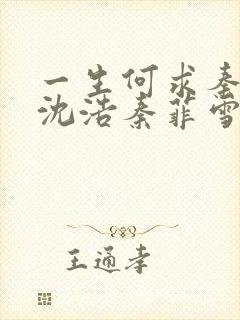 一生何求秦
沈浩秦菲雪
王通孝